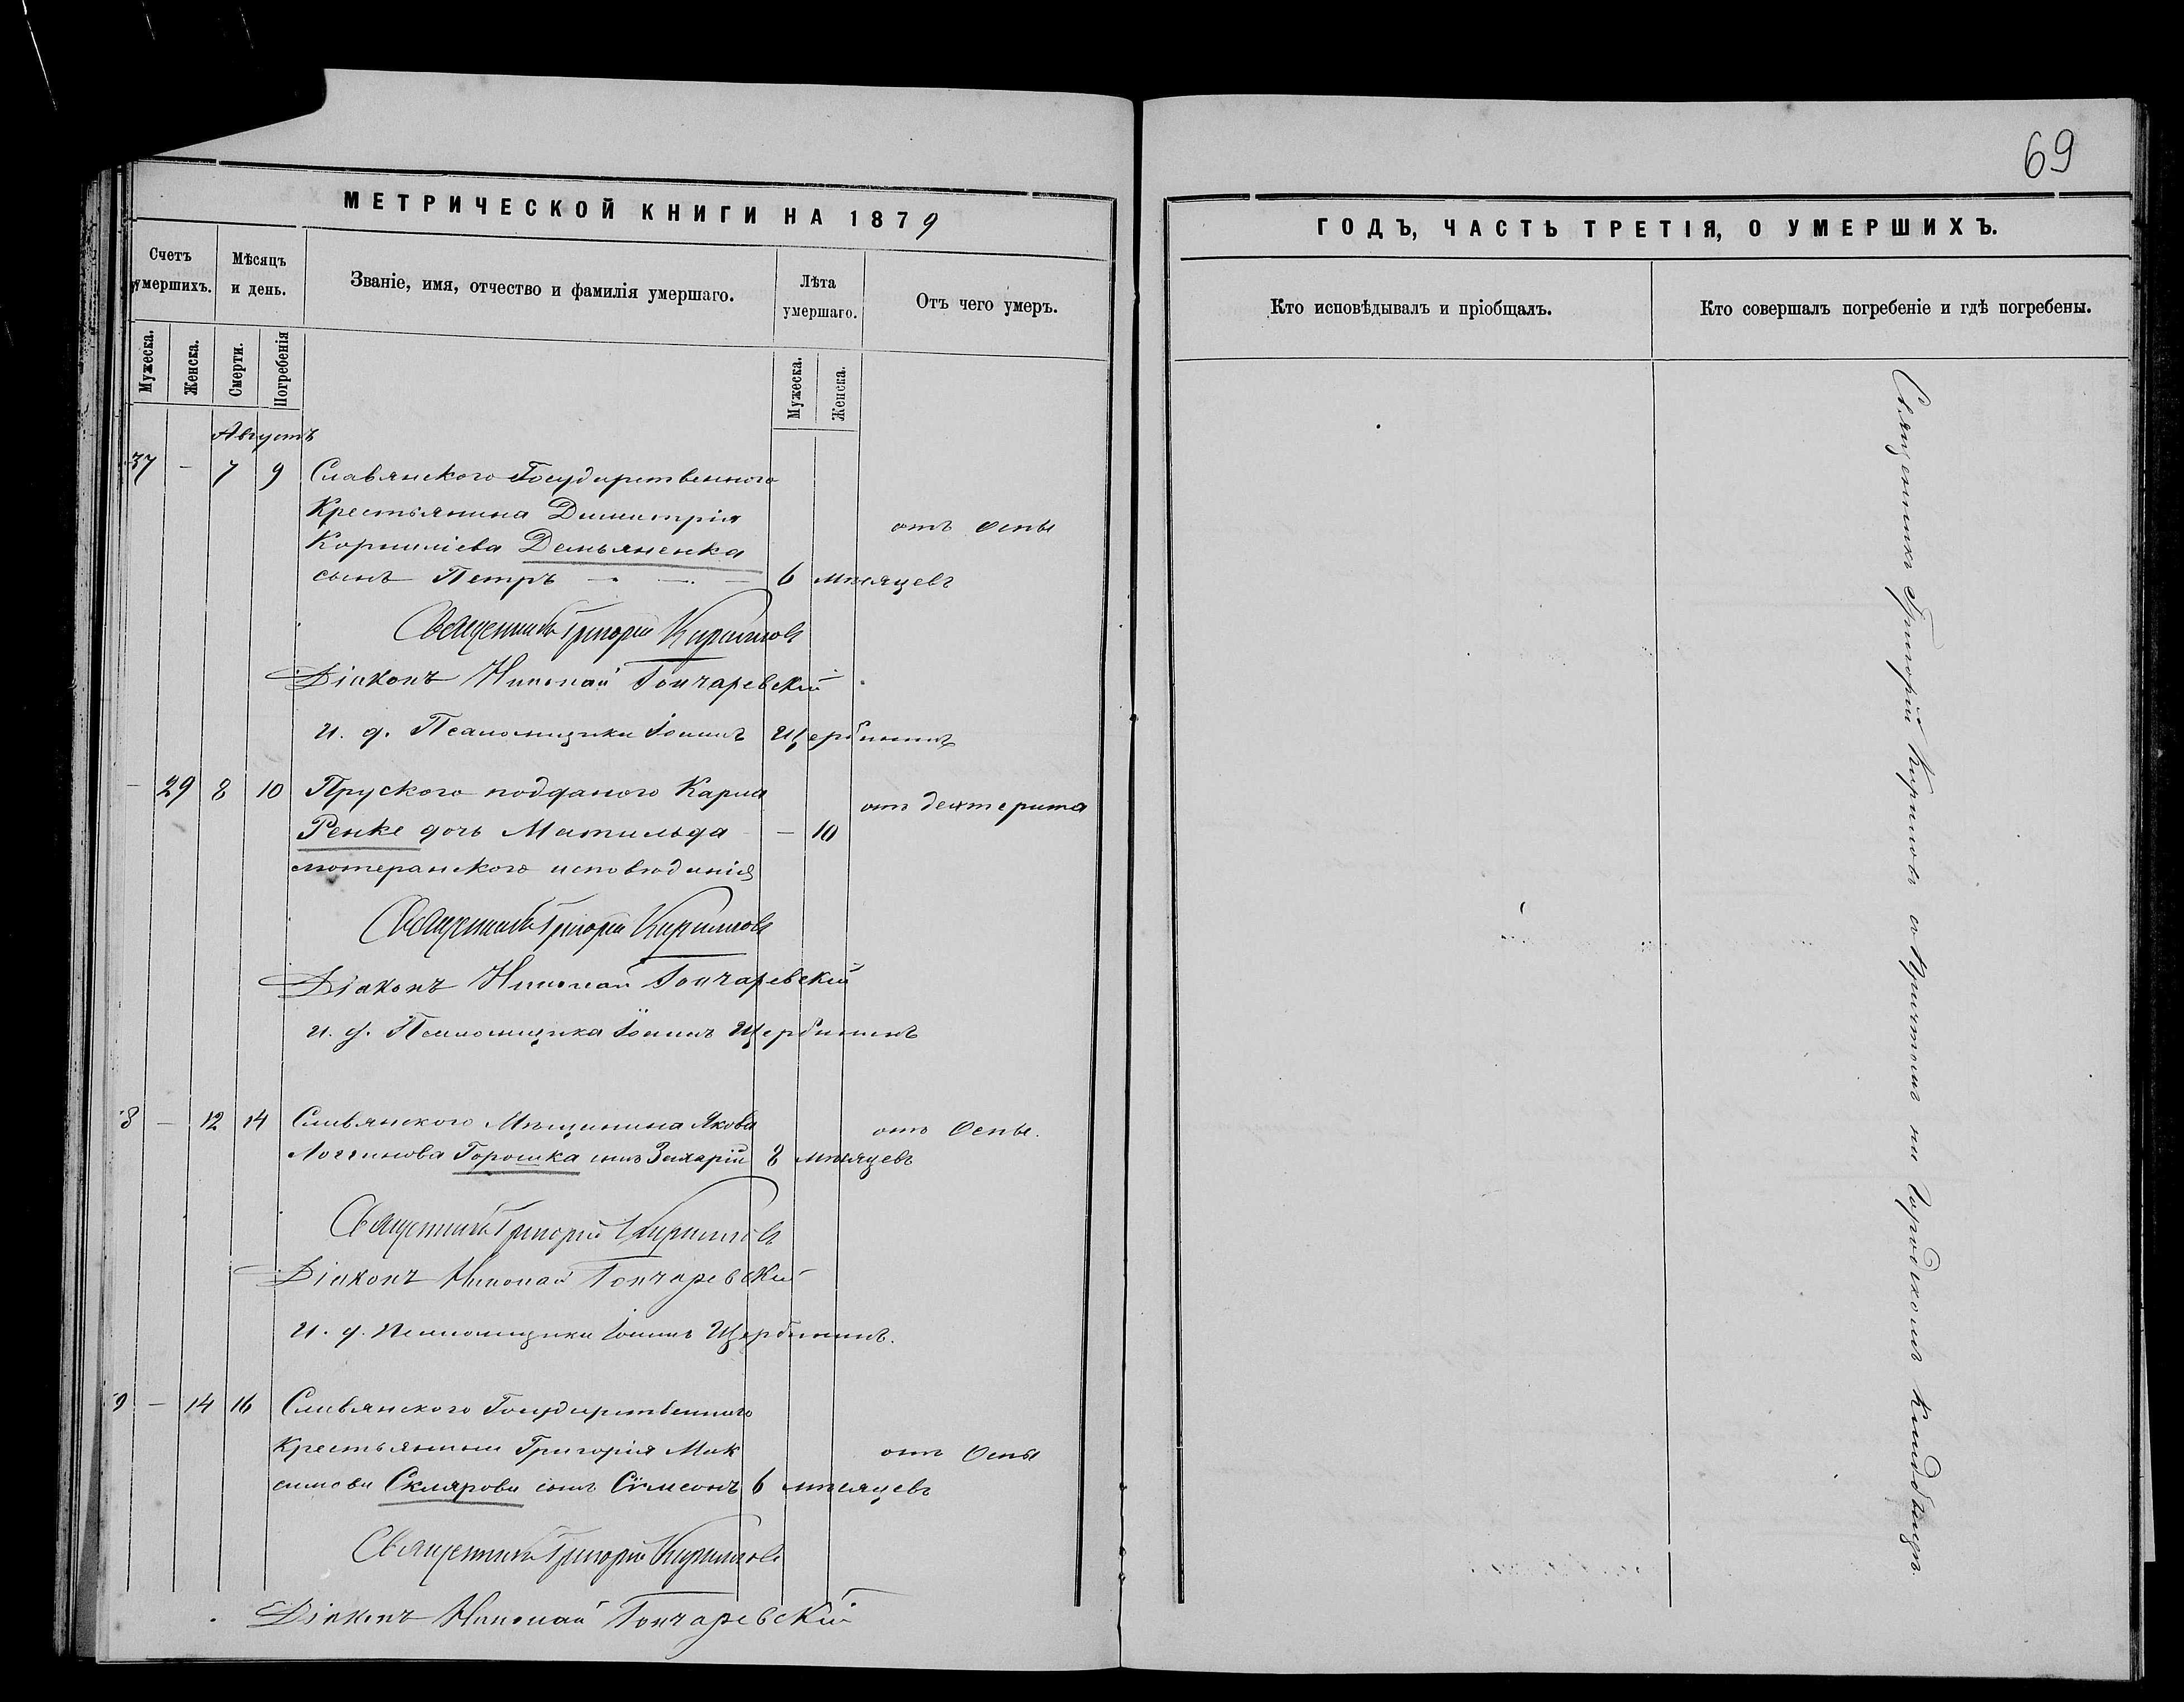 69
МЕТРИЧЕСКОЙ КНИГИ НА 1879
ГОДЪ, ЧАСТЬ ТРЕТІЯ, О УМЕРШИХЪ.
Счетъ умершихъ.
Мѣсяцъ и день.
Званіе, имя, отчество и фамилія умершаго.
Лѣта умершаго.
Отъ чего умеръ.
Кто исповѣдывалъ и пріобщалъ.
Кто совершалъ погребеніе и гдѣ погребены.
Мужеска.
Женска.
Смерти.
Погребенія
Мужеска.
Женска.
Августъ
37 - 7 9 Славянского Государственного
Крестьянина Димитрія
отъ Оспы
Корниліева Демьяненка
сынъ Петръ - - - 6 мѣсяцевъ
Священникъ Григорій Кириловъ
Діаконъ Николай Гончаревскій
и. д. Псаломщика Іоаннъ Щербининъ
- 29 8 10 Пруского подданого Карла
отъ дехтерита
Ренке дочь Матильда - 10
лютеранского исповѣданія
Священникъ Григорій Кириловъ
Діаконъ Николай Гончаревскій
и. д. Псаломщика Іоаннъ Щербининъ
8 - 12 14 Славянского Мѣщанина Якова
отъ Оспы.
Логгинова Горошка сынъ Захарій 8 мѣсяцевъ
Священникъ Григорій Кириловъ
Діаконъ Николай Гончаревскій
И. д. Псаломщика Іоаннъ Щербининъ.
9 - 14 16 Славянского Государственного
Крестьянина Григорія Мак
отъ Оспы
симова Склярова сынъ Сѵмеонъ 6 мѣсяцевъ
Священникъ Григорій Кириловъ
Діаконъ Николай Гончаревскій
Священникъ Григорій Кириловъ съ Причтомъ на Городскомъ Кладбищѣ.